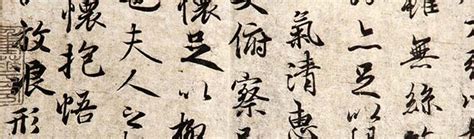 雖無絲
亦足以
氣清惠
大俯察品
懷足以極
也夫人之
懷抱悟
放浪形